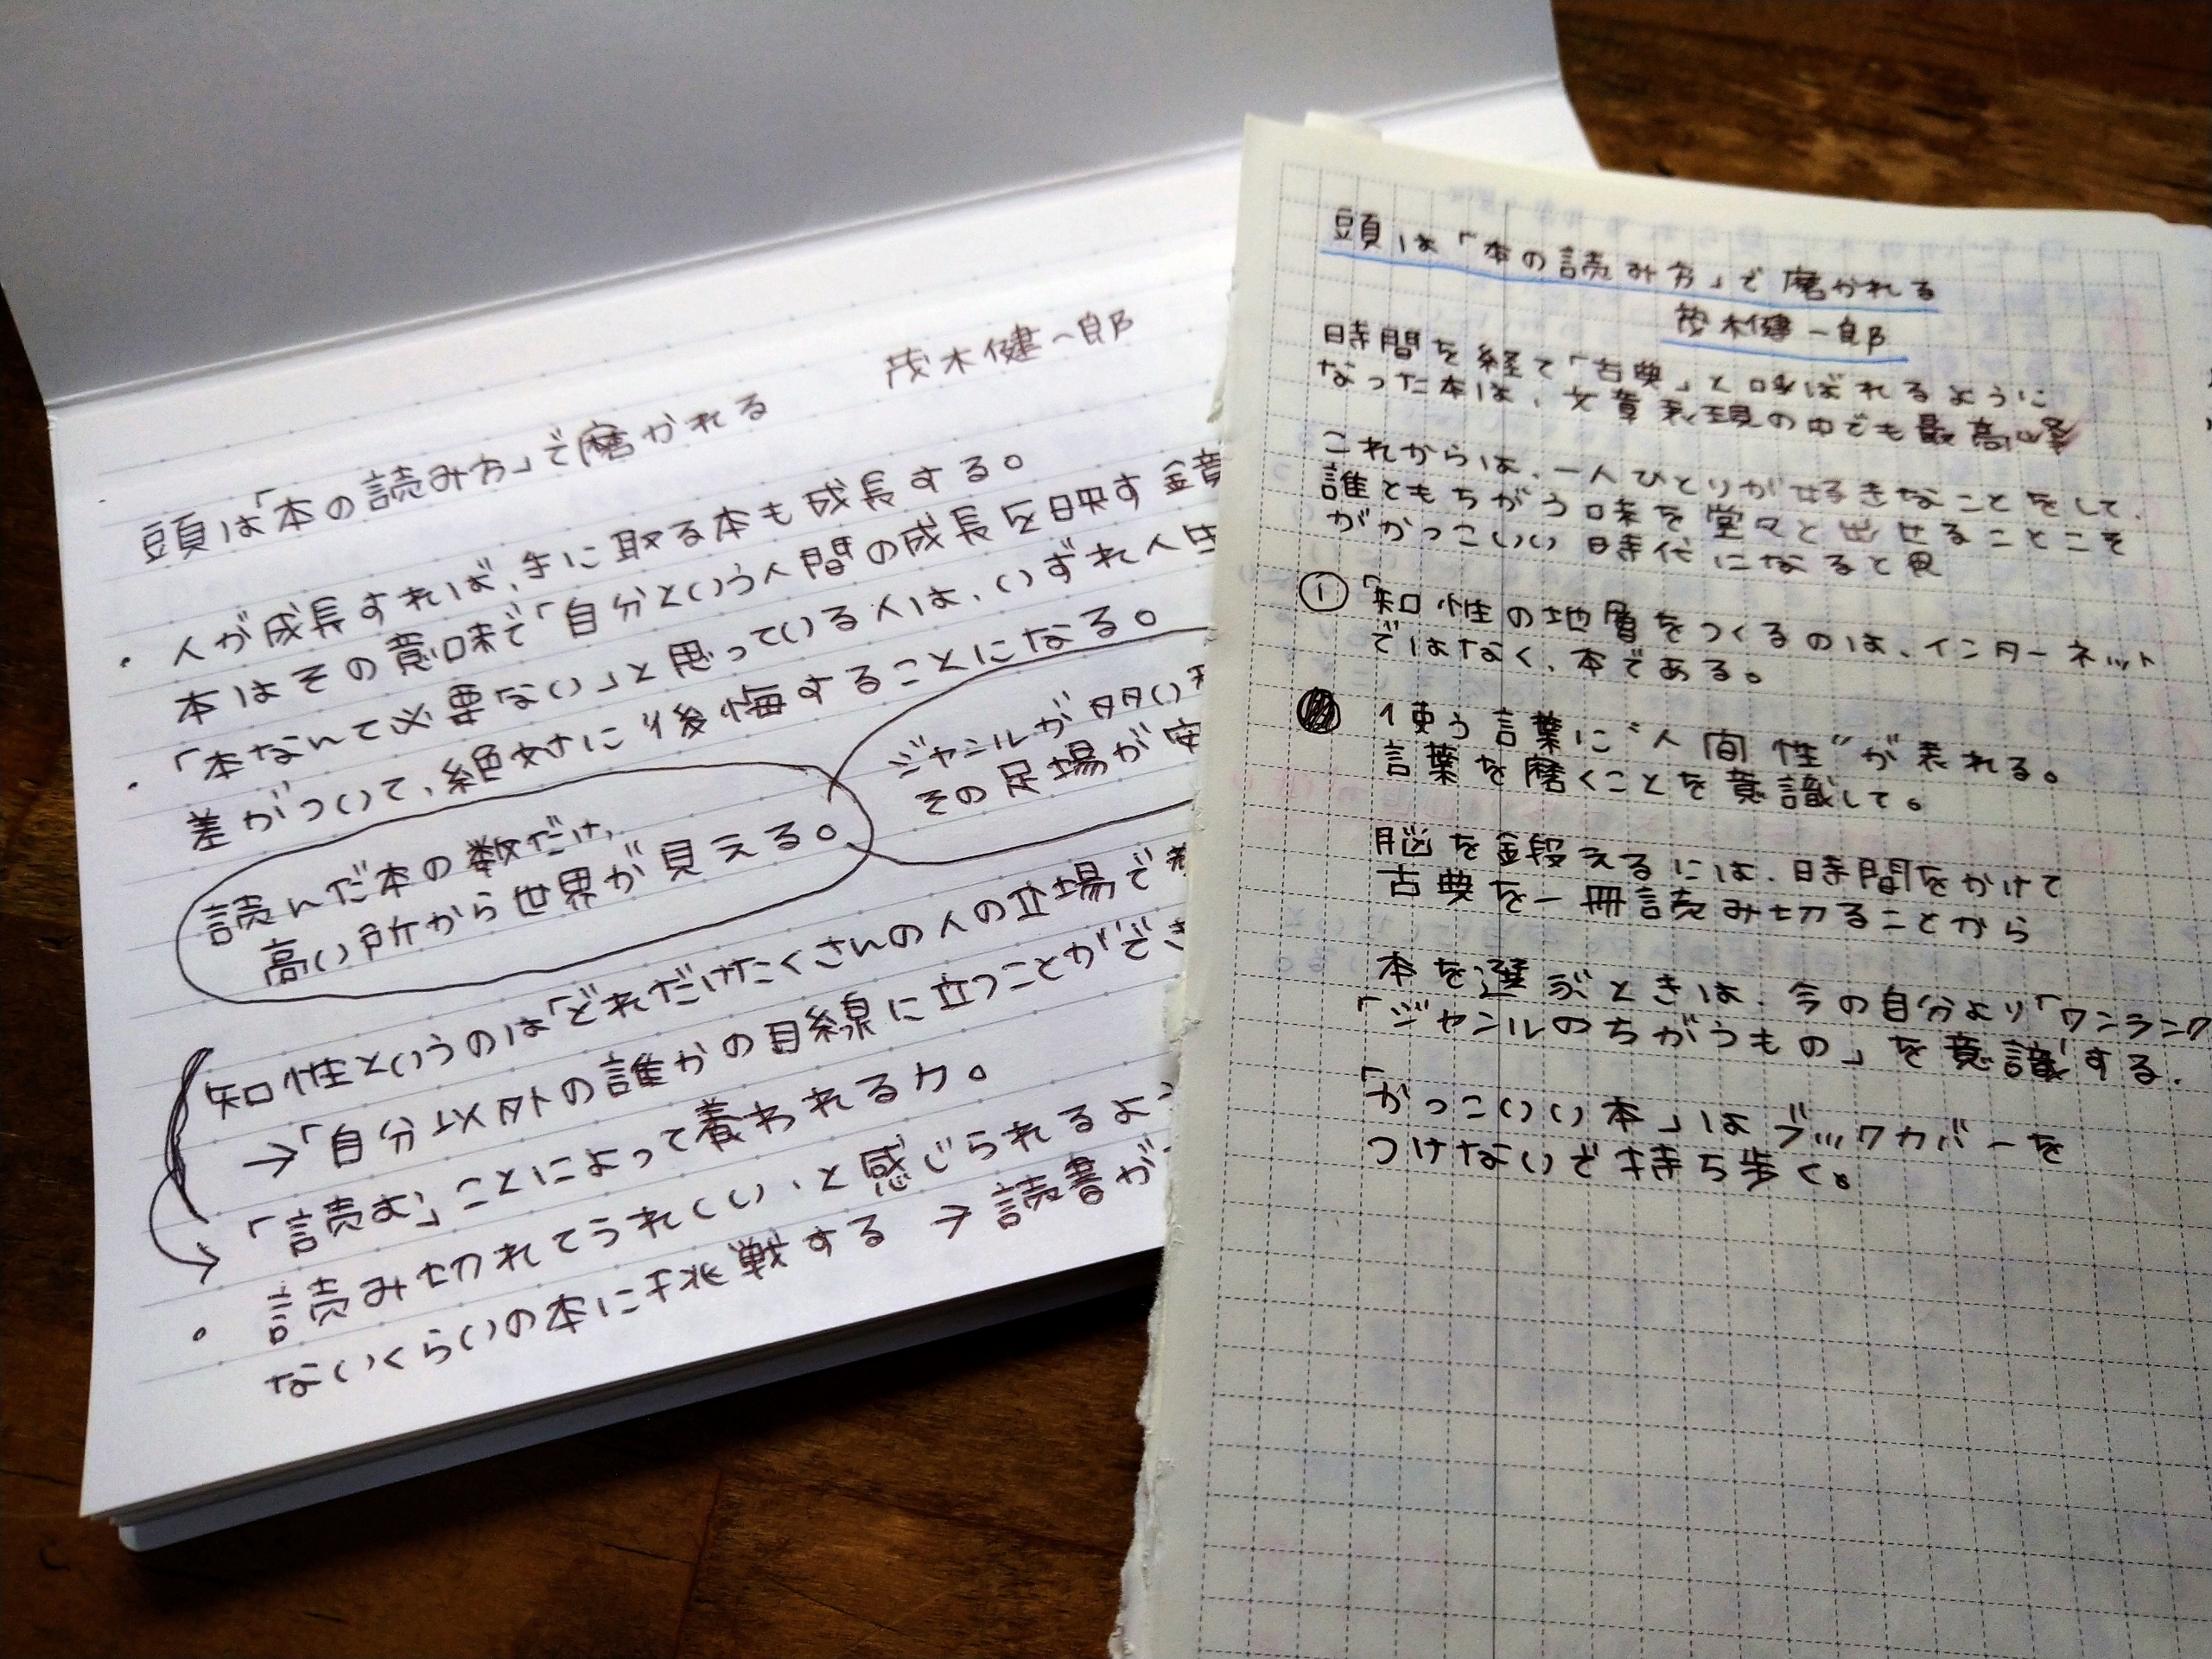 頭は「本の読み方」で磨かれる
茂木健一郎
・人が成長すれば、手に取る本も成長する。
本はその意味で「自分という人間の成長を映す鏡
・「本なんて必要ない」と思っている人は、いずれ人生
差がついて、絶対に後悔することになる。
読んだ本の数だけ、
高い所から世界が見える。
ジャンルが多い
その足場が安
知性というのは「どれだけたくさんの人の立場で
→「自分以外の誰かの目線に立つことができ
「読む」ことによって養われる力。
・読み切れてうれしい、と感じられるよう
ないくらいの本に挑戦する → 読書が
頭は「本の読み方」で磨かれる
茂木健一郎
時間を経て「古典」と呼ばれるように
なった本は、文章表現の中でも最高峰
これからは、一人ひとりが好きなことをして、
誰ともちがう味を堂々と出せることこそ
がかっこいい時代になると思
① 「知性の地層をつくるのは、インターネット
ではなく、本である。
使う言葉に“人間性”が表れる。
言葉を磨くことを意識して。
脳を鍛えるには、時間をかけて
古典を一冊読み切ることから
本を選ぶときは、今の自分より「ワンランク
「ジャンルのちがうもの」を意識する.
「かっこいい本」はブックカバーを
つけないで持ち歩く。